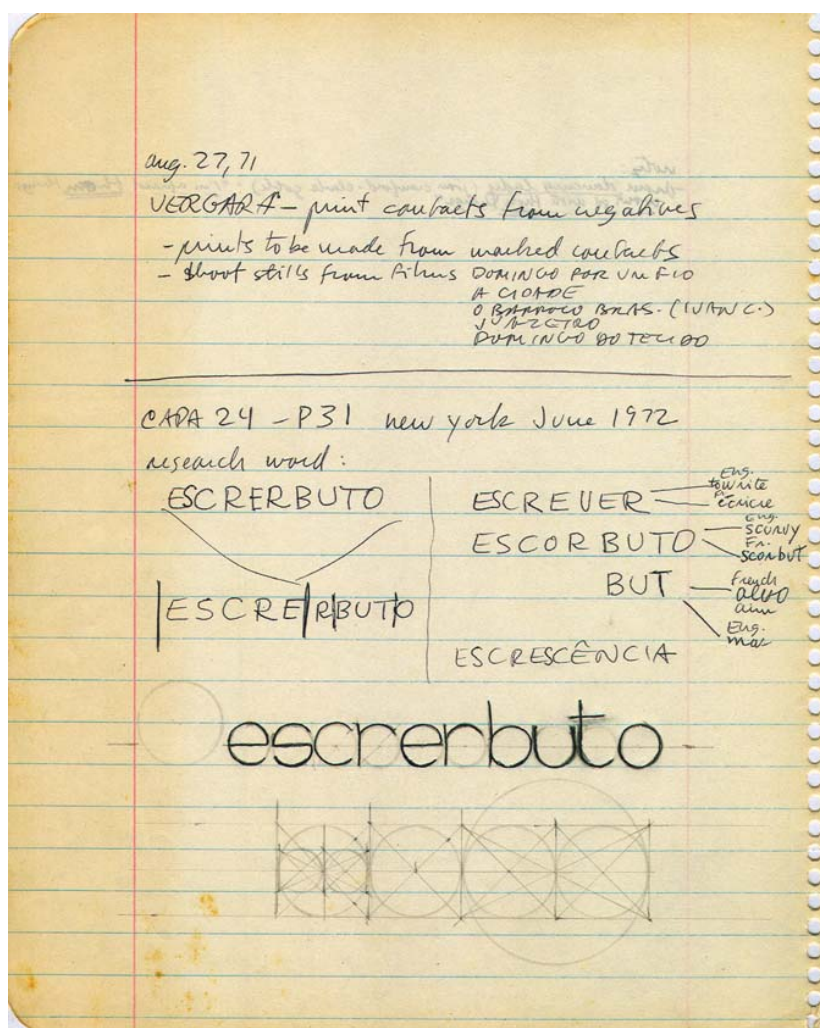 aug. 27, 71
VERGARA - print contacts from negatives
- prints to be made from marked contacts
- shoot stills from films DOMINGO POR UM FIO
A CIDADE
O BARROCO BRAS. (IVAN C.)
JUAZEIRO
DOMINGO DO TECIDO
CAPA 24 - P31 new york June 1972
research word:
ESCRERBUTO
ESCRE/R/BUTO
ESCREVER
Eng.
to write
Fr.
écrire
ESCORBUTO
Eng.
SCURVY
Fr.
scorbut
BUT
French
alvo
aim
Eng.
mas
ESCRESCÊNCIA
escrerbuto